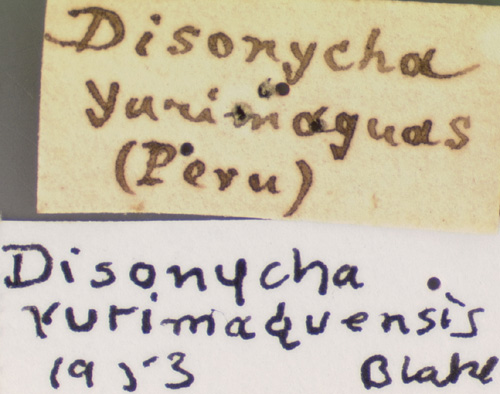 Disonycha
Yurimaguas
(Peru)
Disonycha
yurimaquensis
1953 Blake